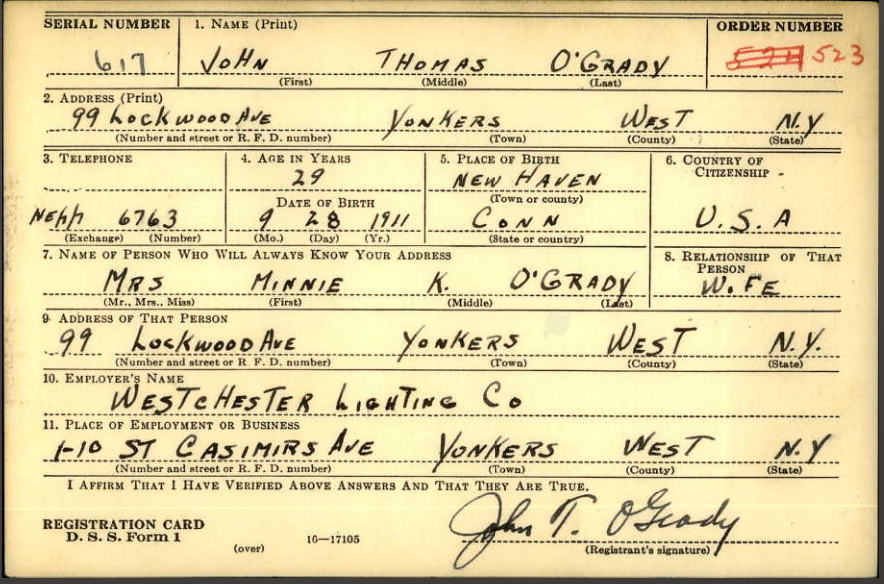 SERIAL NUMBER 1. NAME (Print) ORDER NUMBER
617 JOHN THOMAS O'GRADY 524 523
(First) (Middle) (Last)
2. ADDRESS (Print)
99 LOCKWOOD AVE YONKERS WEST N.Y
(Number and street or R. F. D. number) (Town) (County) (State)
3. TELEPHONE 4. AGE IN YEARS 5. PLACE OF BIRTH 6. COUNTRY OF CITIZENSHIP
29 NEW HAVEN
DATE OF BIRTH (Town or county)
NEPP 6763 9 28 1911 CONN U.S.A
(Exchange) (Number) (Mo.) (Day) (Yr.) (State or country)
7. NAME OF PERSON WHO WILL ALWAYS KNOW YOUR ADDRESS 8. RELATIONSHIP OF THAT PERSON
MRS MINNIE K. O'GRADY WIFE
(Mr., Mrs., Miss) (First) (Middle) (Last)
9. ADDRESS OF THAT PERSON
99 LOCKWOOD AVE YONKERS WEST N.Y.
(Number and street or R. F. D. number) (Town) (County) (State)
10. EMPLOYER'S NAME
WESTCHESTER LIGHTING CO
11. PLACE OF EMPLOYMENT OR BUSINESS
1-10 ST CASIMIRS AVE YONKERS WEST N.Y
(Number and street or R. F. D. number) (Town) (County) (State)
I AFFIRM THAT I HAVE VERIFIED ABOVE ANSWERS AND THAT THEY ARE TRUE.
REGISTRATION CARD John T. O'Grady
D. S. S. Form 1 (over) 16—17105 (Registrant's signature)